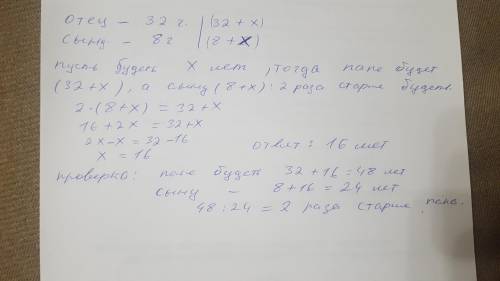 отец – 32 г. | (32 + x)
сыну – 8 г | (8 + x)
пусть будеть x лет, тогда папе будет
(32 + x), а сыну (8 + x) : 2 раза старше будеть.
2 · (8 + x) = 32 + x
16 + 2x = 32 + x
2x – x = 32 – 16
x = 16
ответ: 16 лет
проверка: папе будеть 32 + 16 = 48 лет
сыну – 8 + 16 = 24 лет
48 : 24 = 2 раза старше папа.